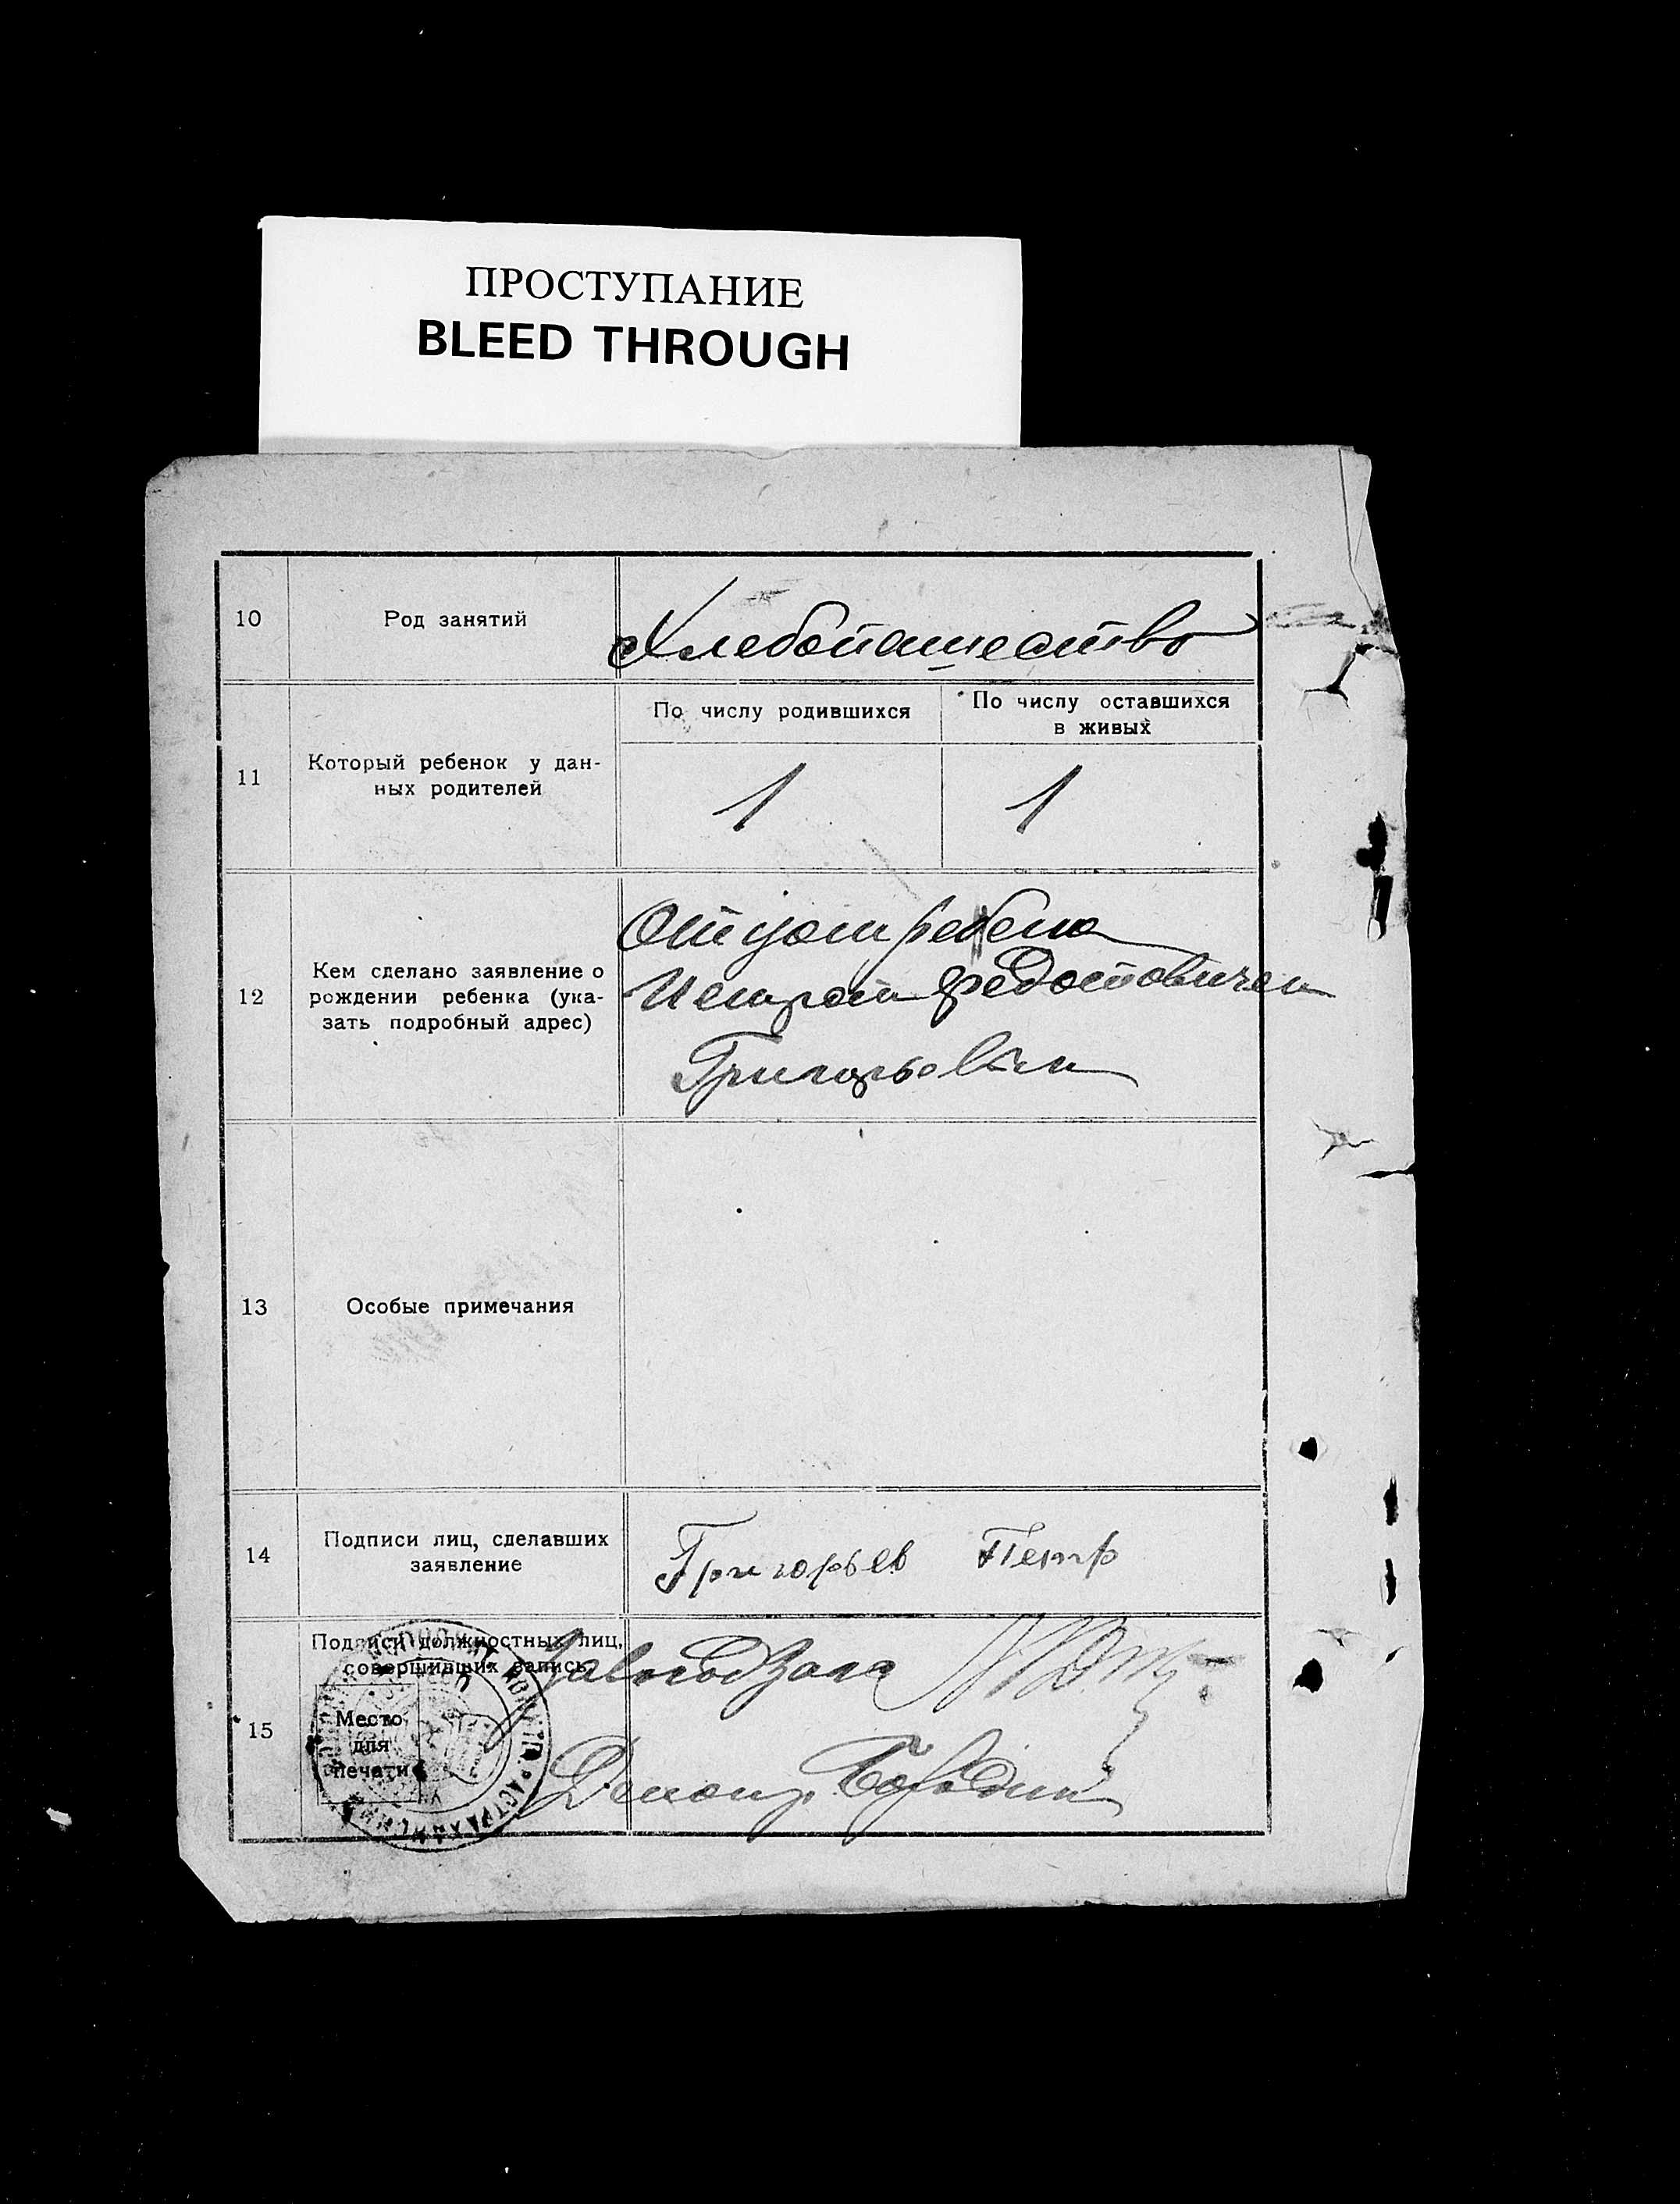 ПРОСТУПАНИЕ
BLEED THROUGH
10
Род занятий
Хлебопашество
11
Который ребенок у дан-
ных родителей
По числу родившихся
По числу оставшихся
в живых
1
1
12
Кем сделано заявление о
рождении ребенка (ука-
зать подробный адрес)
Отцом ребенка
Петром
Григорьевым
13
Особые примечания
14
Подписи лиц, сделавших
заявление
Григорьев Петр
15
Подписи должностных лиц,
совершивших запись
Место
для
печати